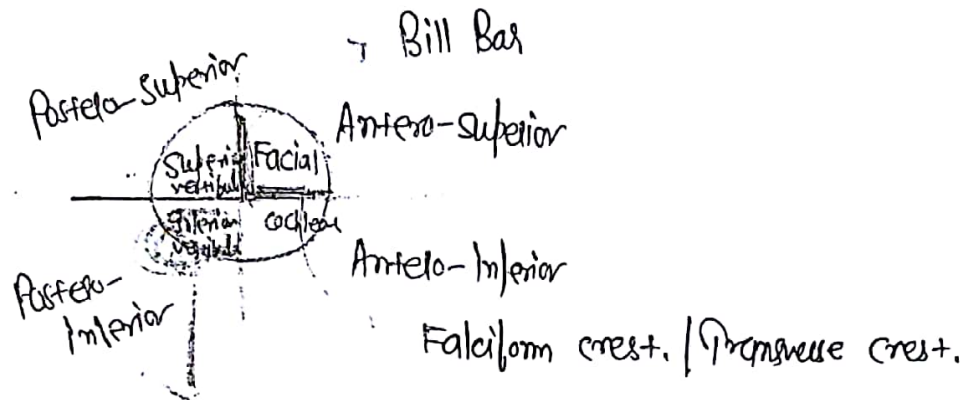 Bill Bar
Postero-Superior
Antero-Superior
Superior vestibular
Facial
Inferior vestibular
cochlear
Antero-Inferior
Postero-Inferior
Falciform crest. / Transverse crest.